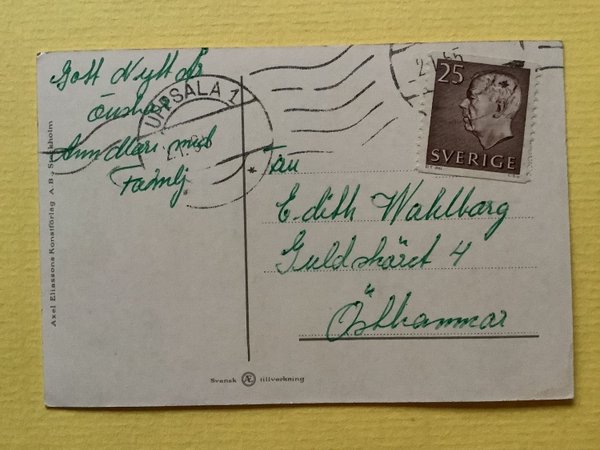 Gott Nytt År
önskar
Ann Mari med
Familj
UPPSALA 1
25
SVERIGE
Edith Wahlbarg
Guldskäret 4
Östhammar
Axel Eliassons Konstförlag A. B., Stockholm
Svensk Æ tillverkning